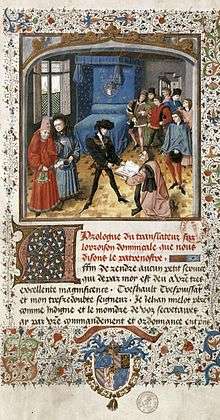 Prologue du translateur sur
loroison dominicale que nous
disons le patenostre
Affin de rendre aucun petit service
qui de par moy est deu a vre tres
excellente magnificence . Treshault Trespuissāt
et mon tresredoubte seigneur . Je Jehan mielot vre
comme indigne et le moindre de voz secretaires
ay par vre commandement et ordonnance